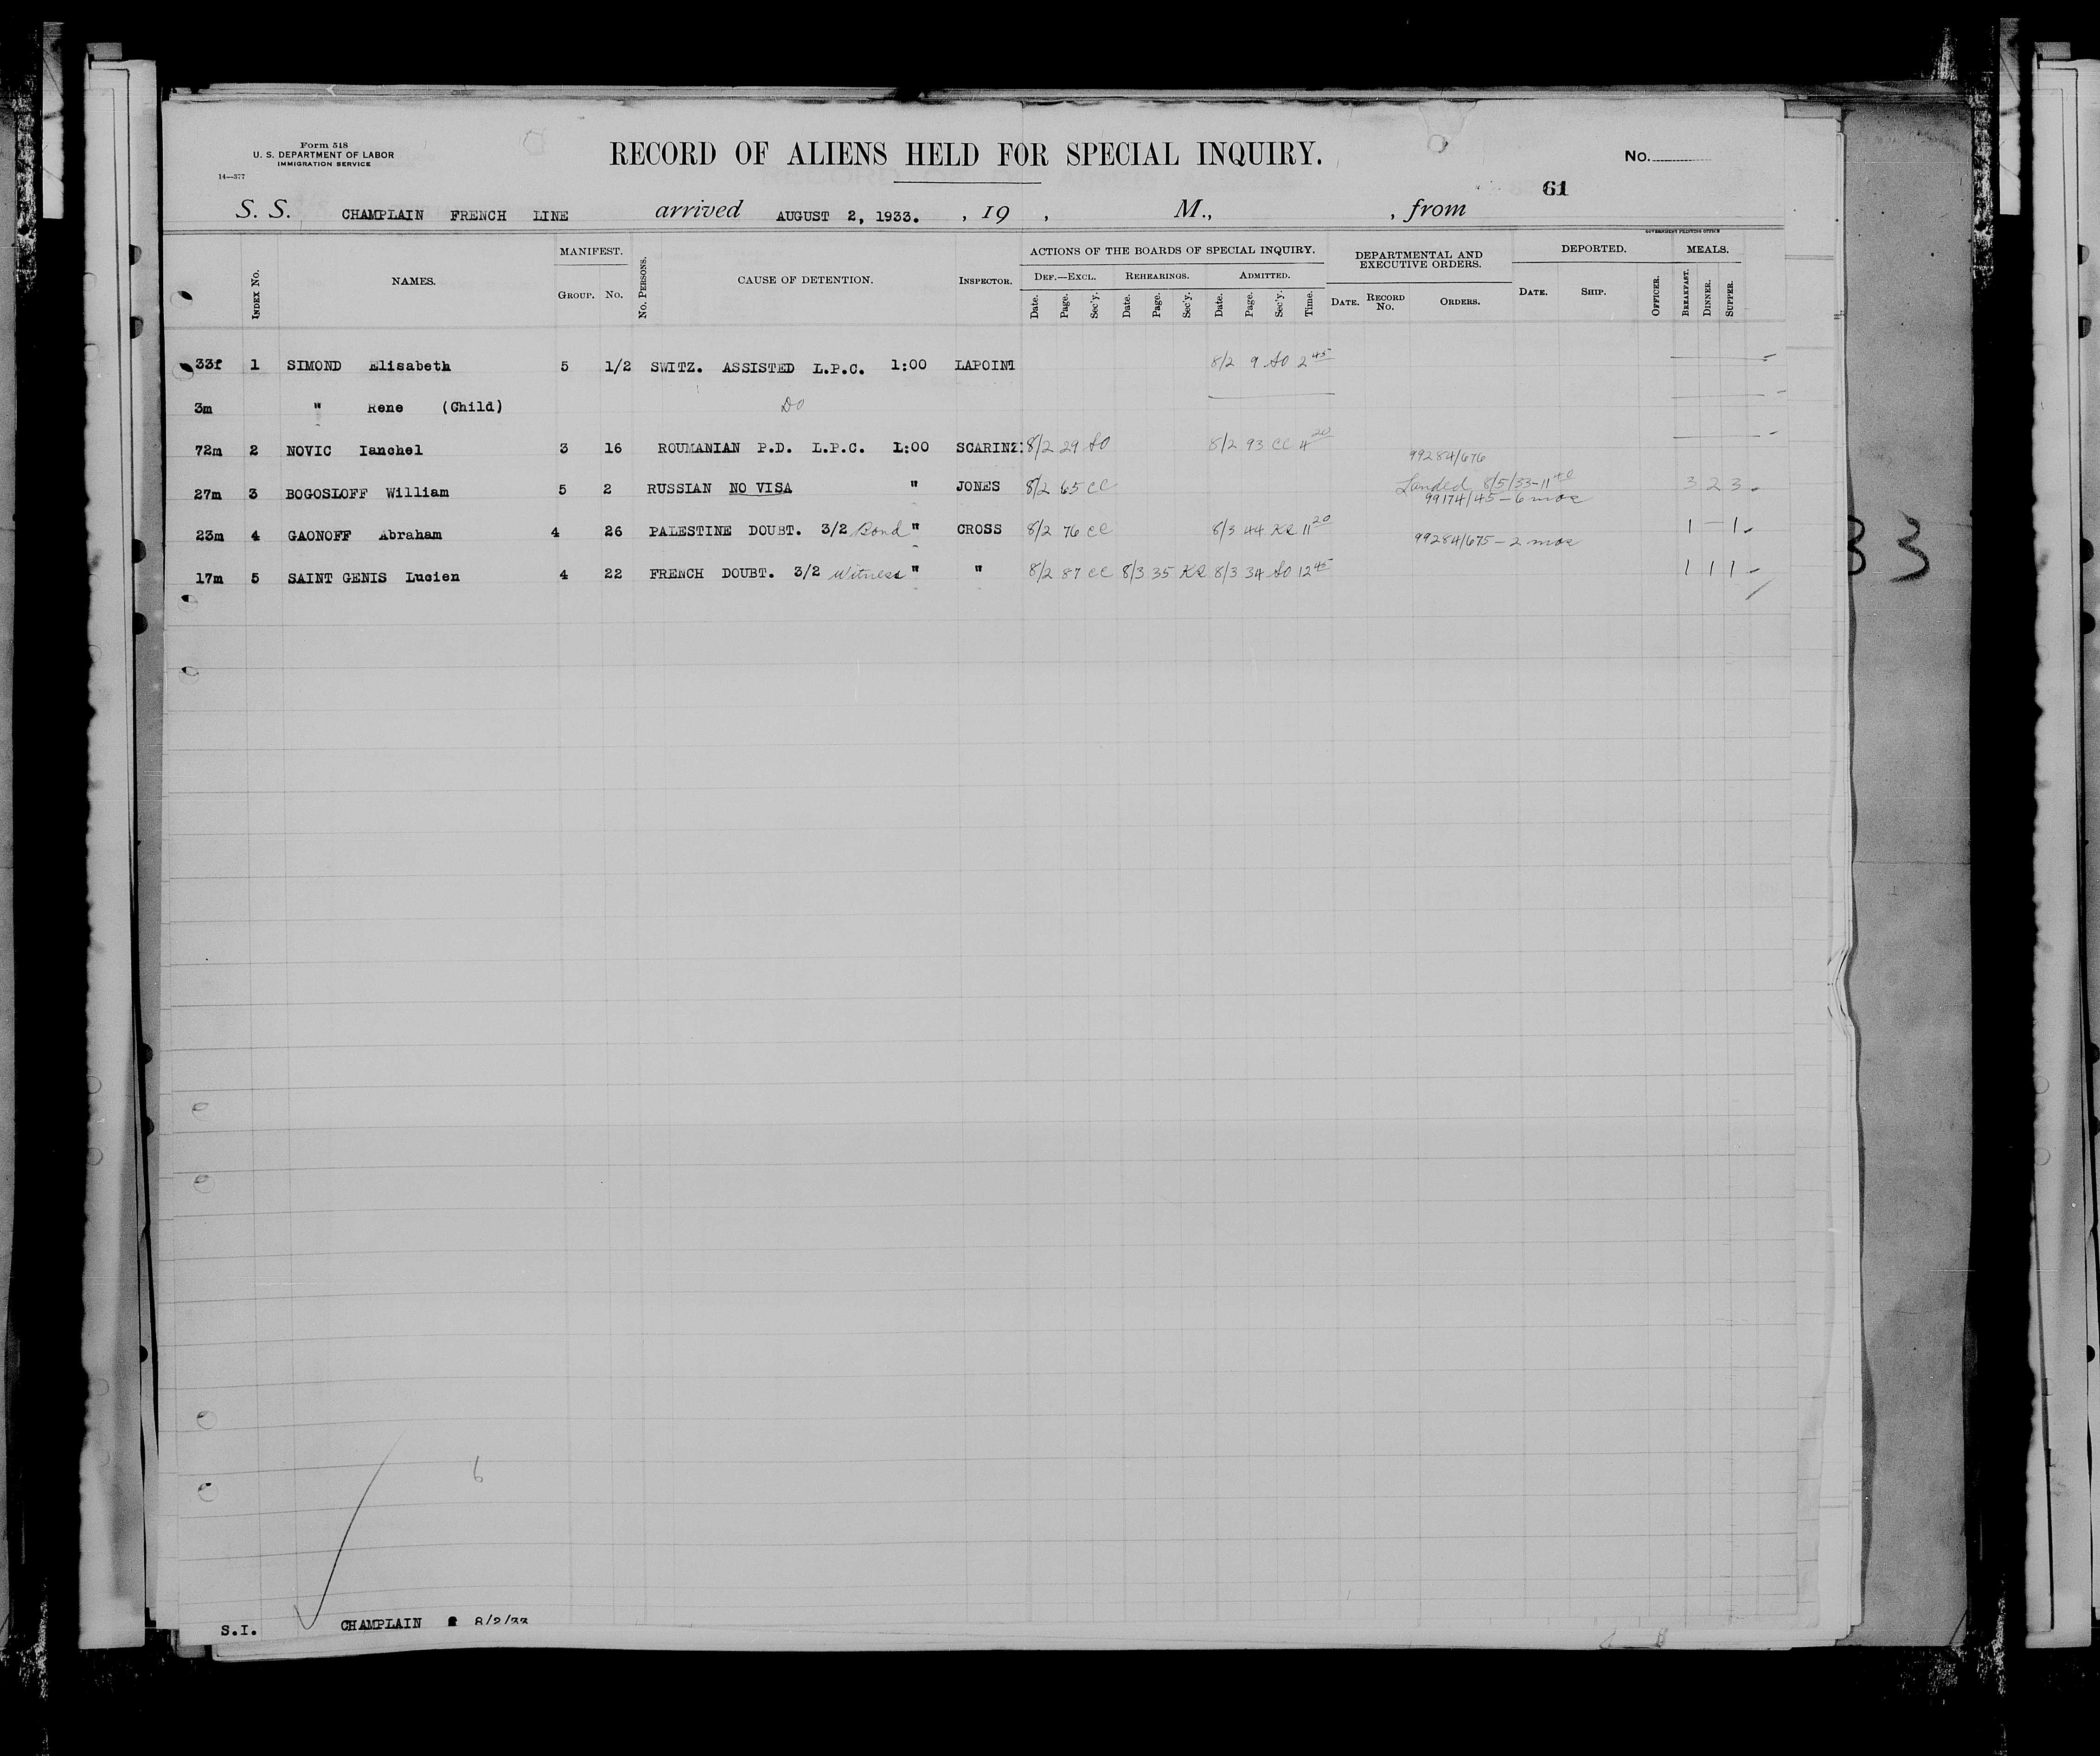 Form 518
U. S. DEPARTMENT OF LABOR
IMMIGRATION SERVICE
14—377
RECORD OF ALIENS HELD FOR SPECIAL INQUIRY.
No.
61
S. S. CHAMPLAIN FRENCH LINE arrived AUGUST 2, 1933. , 19 , M., , from
GOVERNMENT PRINTING OFFICE
INDEX No. NAMES. MANIFEST. GROUP. No. No. PERSONS. CAUSE OF DETENTION. INSPECTOR. ACTIONS OF THE BOARDS OF SPECIAL INQUIRY. DEPARTMENTAL AND EXECUTIVE ORDERS. DEPORTED. MEALS.
DEF.—EXCL. REHEARINGS. ADMITTED.
Date. Page. Sec'y. Date. Page. Sec'y. Date. Page. Sec'y. Time. DATE. RECORD No. ORDERS. DATE. SHIP. OFFICER. BREAKFAST. DINNER. SUPPER.
33f 1 SIMOND Elisabeth 5 1/2 SWITZ. ASSISTED L.P.C. 1:00 LAPOINT 8/2 9 SO 2 45
3m " Rene (Child) DO
72m 2 NOVIC Ianchel 3 16 ROUMANIAN P.D. L.P.C. 1:00 SCARINZ 8/2 29 SO 8/2 93 CC 4 20
99284/676
27m 3 BOGOSLOFF William 5 2 RUSSIAN NO VISA " JONES 8/2 65 CC Landed 8/5/33-11 40 3 2 3
99174/45 - 6 mos
23m 4 GAONOFF Abraham 4 26 PALESTINE DOUBT. 3/2 Bond " CROSS 8/2 76 CC 8/3 44 KR 11 20 1 — 1
99284/675 - 2 mos
17m 5 SAINT GENIS Lucien 4 22 FRENCH DOUBT. 3/2 Witness " " 8/2 87 CC 8/3 35 KR 8/3 34 SO 12 45 1 1 1
33
6
S.I. CHAMPLAIN 8/2/33